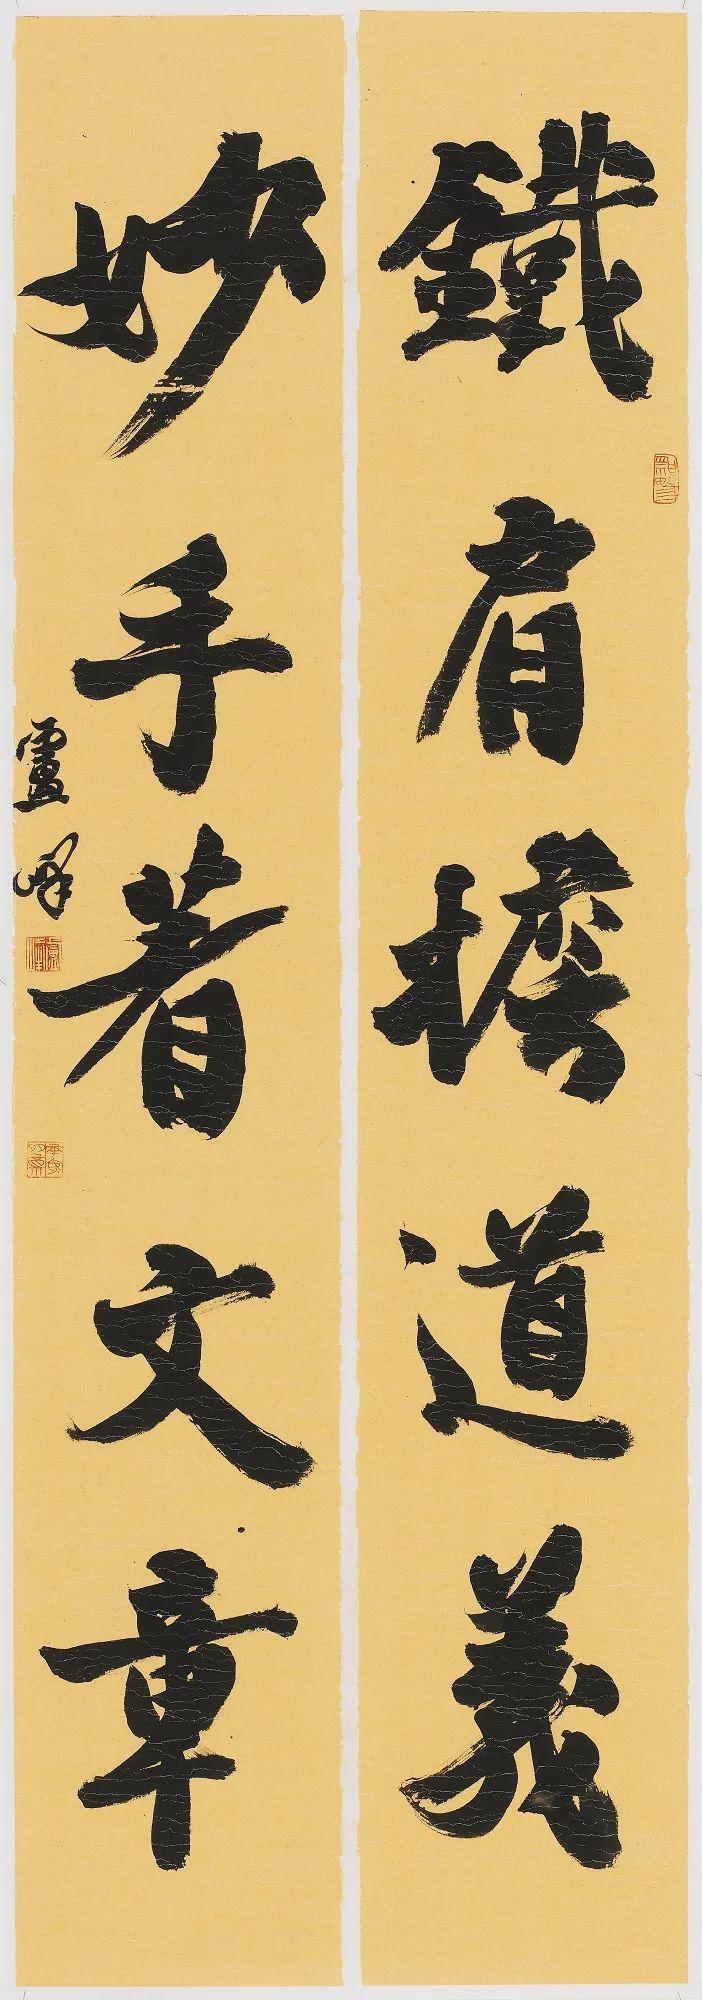 鐵肩擔道義
妙手著文章
盧峰